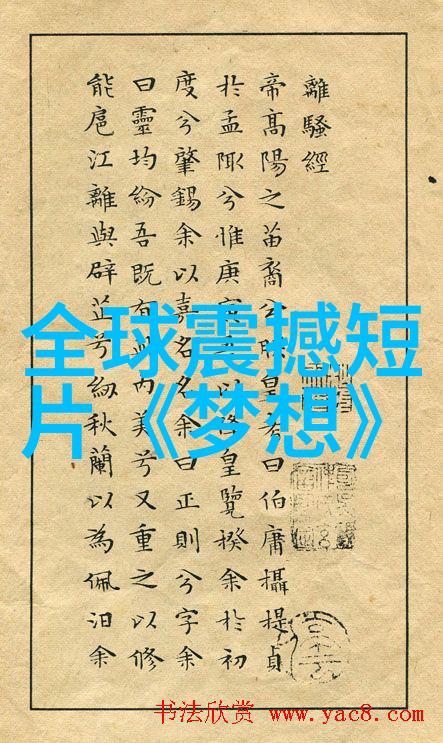 離騷經
帝高陽之苗裔兮朕皇考曰伯庸攝提貞
於孟陬兮惟庚寅吾以降皇覽揆余於初
度兮肇錫余以嘉名名余曰正則兮字余
曰靈均紛吾既有此內美兮又重之以修
能扈江離與辟芷兮紉秋蘭以為佩汩余
全球震撼短
片《梦想》
书法欣赏 www.yac8.com